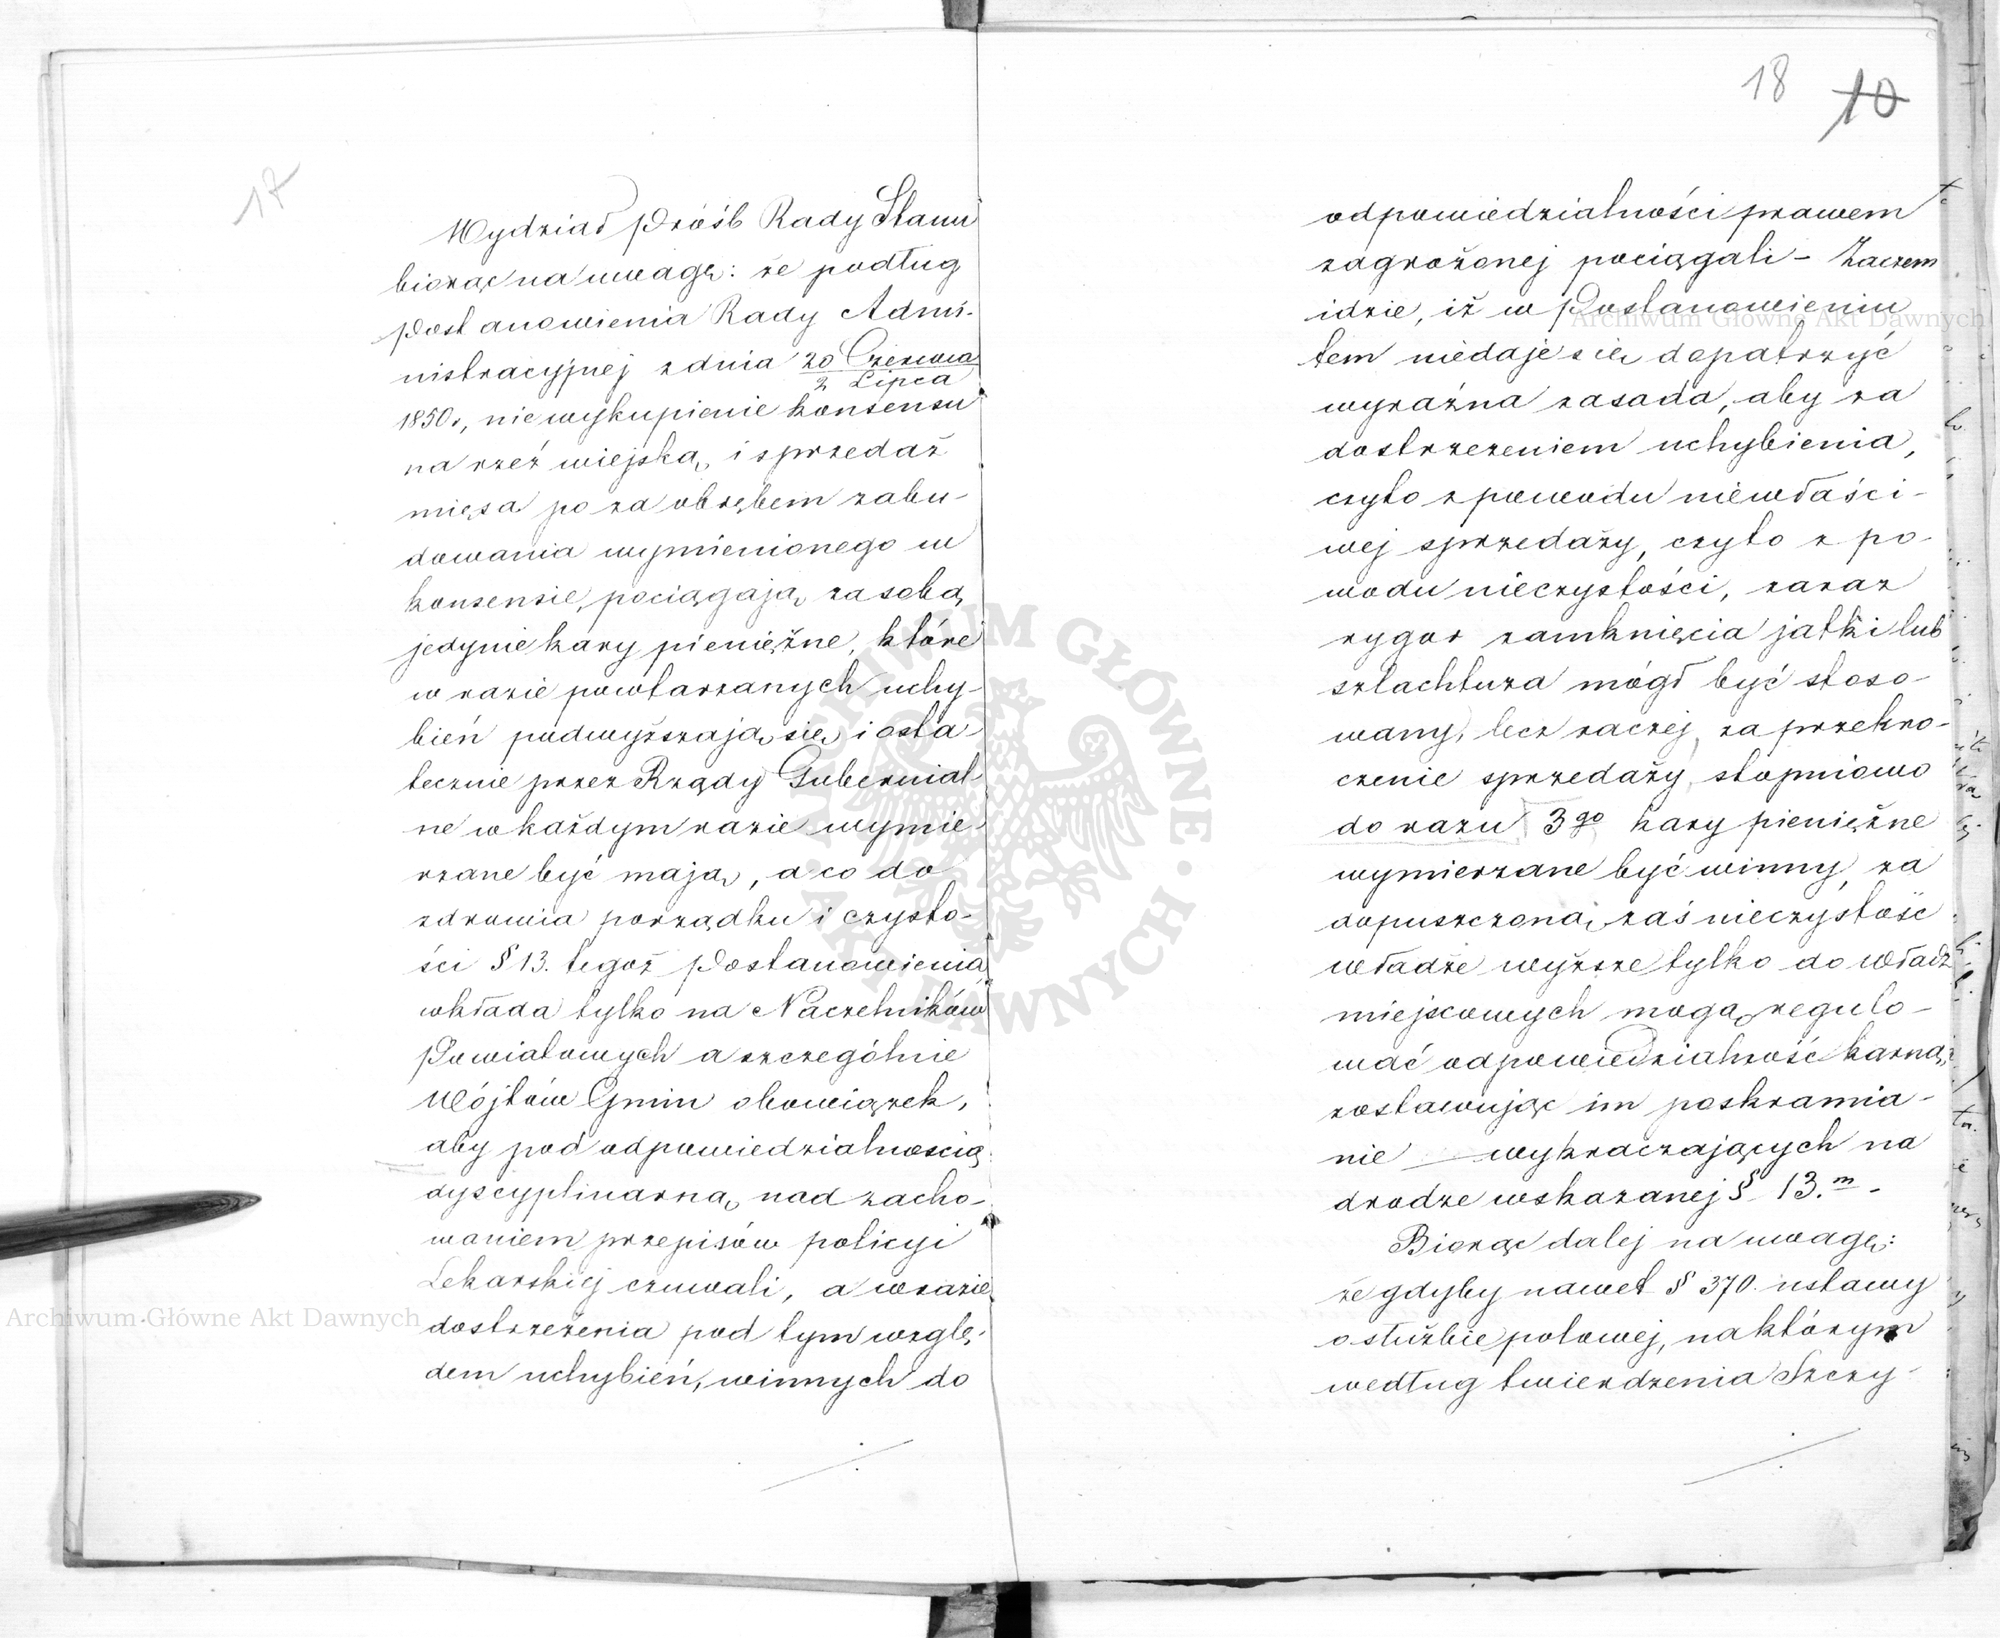 17
Wydział Próśb Rady Stanu
biorąc na uwagę: że podług
Postanowienia Rady Admi-
nistracyjnej z dnia 20 Czerwca
2 Lipca
1850 r, niewykupienie konsensu
na rzeź wiejską, i sprzedaż
mięsa po za obrębem zabu-
dowania wymienionego w
konsensie, pociągają za sobą
jedynie kary pieniężne, które
w razie powtarzanych uchy-
bień podwyższają się, i osta-
tecznie przez Rządy Gubernial-
ne w każdym razie wymie-
rzane być mają, a co do
zdrowia porządku i czysto-
ści § 13. tegoż Postanowienia
wkłada tylko na Naczelników
Powiatowych a szczególnie
Wójtów Gmin obowiązek,
aby pod odpowiedzialnoscią
dyscyplinarną, nad zacho-
waniem przepisów policyi
Lekarskiej czuwali, a w razie
dostrzeżenia pod tym wzglę-
dem uchybień, winnych do
18 10
odpowiedzialności prawem
zagrożonej pociągali – Zaczem
idzie, iż w Postanowieniu
tem niedaje się dopatrzyć
wyraźna zasada, aby za
dostrzeżeniem uchybienia,
czyto z powodu niewłaści-
wej sprzedaży, czyto z po-
wodu nieczystości, zaraz
rygor zamknięcia jatki lub
szlachtuza mógł być stoso-
wany, lecz raczej, za przekro-
czenie sprzedaży, stopniowo
do razu 3go kary pieniężne
wymierzane być winny, za
dopuszczoną, zaś nieczystość
władze wyższe tylko do władz
miejscowych mogą regulo-
wać odpowiedzialność karną,
zostawując im poskramia-
nie wykraczających na
drodze wskazanej § 13.m –
Biorąc dalej na uwagę:
że gdyby nawet § 370. ustawy
o służbie polowej, na którym
według twierdzenia Szczy-
Archiwum Główne Akt Dawnych
Archiwum Główne Akt Dawnych
ARCHIWUM GŁÓWNE · AKT DAWNYCH ·